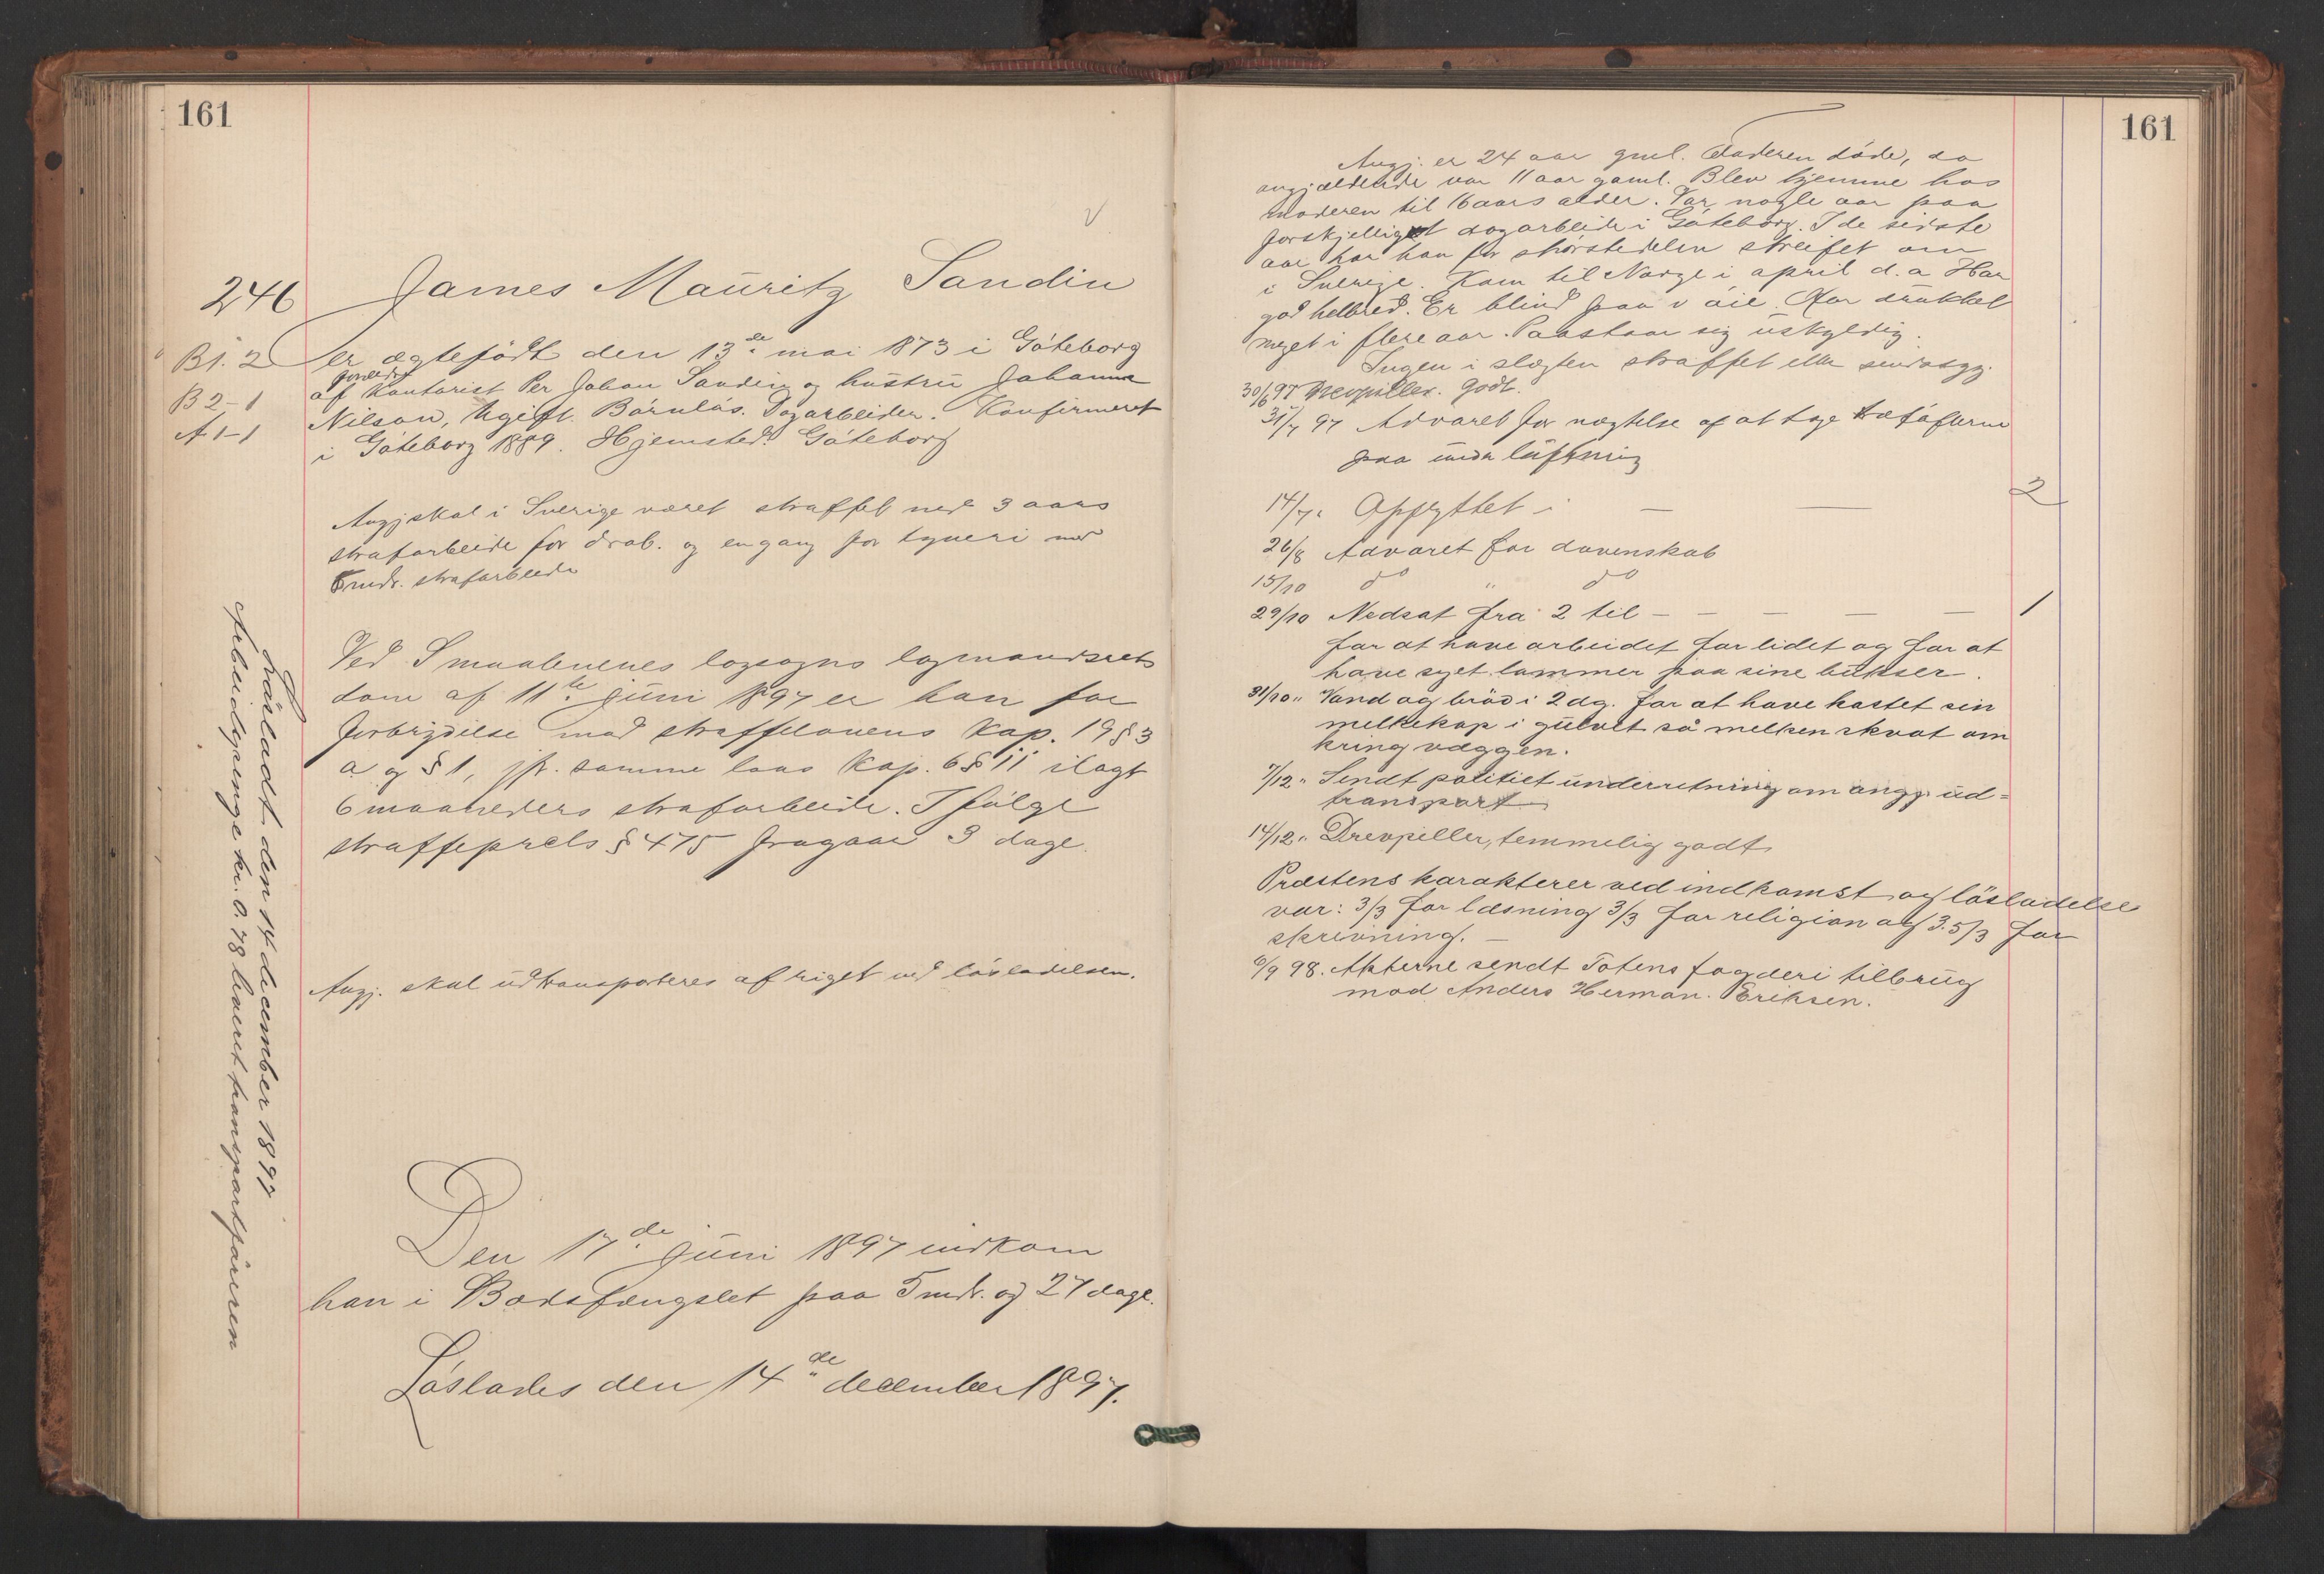 161
246
James Mauritz Sandin
B 1. 2
er ægtefødt den 13de mai 1873 i Göteborg
forældre
af Kontorist Per Johan Sandin og hustru Johanna
B 2-1
Nilson, Ugift. Barnløs. Dagarbeider. Konfirmeret
A 1-1
i Göteborg 1889. Hjemsted: Göteborg
Angj skal i Sverige været straffet med 3 aars
strafarbeide for drab. og engang for tyveri med
6 mdr. strafarbeide
Ved Smaalenenes lagsogns lagmandsrets
dom af 11te juni 1897 er han for
forbrydelse mod straffelovens Kap. 19 § 3
a og § 1, jfr. samme lovs Kap. 6 § 11 ilagt
6 maaneders strafarbeide. Ifølge
straffeprcls § 475 fragaar 3 dage.
Angj. skal udtransporteres af riget ved løsladelsen.
Den 17de juni 1897 indkom
han i Bodsfængslet paa 5 mdr. og 27 dage.
Løslades den 14de december 1897.
Løsladt den 14 december 1897
Arbeidspenge kr. 0.78 leveret transportføreren
161
Angj. er 24 aar gml. Faderen døde, da
angjældende var 11 aar gaml. Blev hjemme hos
moderen til 16 aars alder. Var nogle aar paa
forskjelligt dagarbeide i Göteborg. I de sidste
aar har han for størstedelen streifet om
i Sverige. Kom til Norge i april d. a Har
god helbred. Er blind paa v øie. Har drukket
meget i flere aar. Paastaar sig uskyldig.
Ingen i slægten straffet eller sindssyg.
30/6 97 Drevpiller. Godt.
31/7 97 Advaret for nægtelse af at tage træfóflerne
paa under luftning
14/7 " Opflyttet i — — 2
26/8 Advaret for dovenskab
15/10 do " do
29/10 Nedsat fra 2 til - - - - - 1
for at have arbeidet for lidet og for at
have syet lommer paa sine bukser.
31/10 " Vand og brød i 2 dg. for at have kastet sin
melkekop i gulvet så melken skvat om
kring væggen.
7/12 " Sendt politiet underretning om angj. ud=
transport
14/12 " Drevpiller, temmelig godt
Prestens karakterer ved indkomst og løsladelse
var: 3/3 for læsning 3/3 for religion og 3.5/3 for
skrivning. —
6/9 98. Akterne sendt Totens fogderi tilbrug
mod Anders Herman. Eriksen.